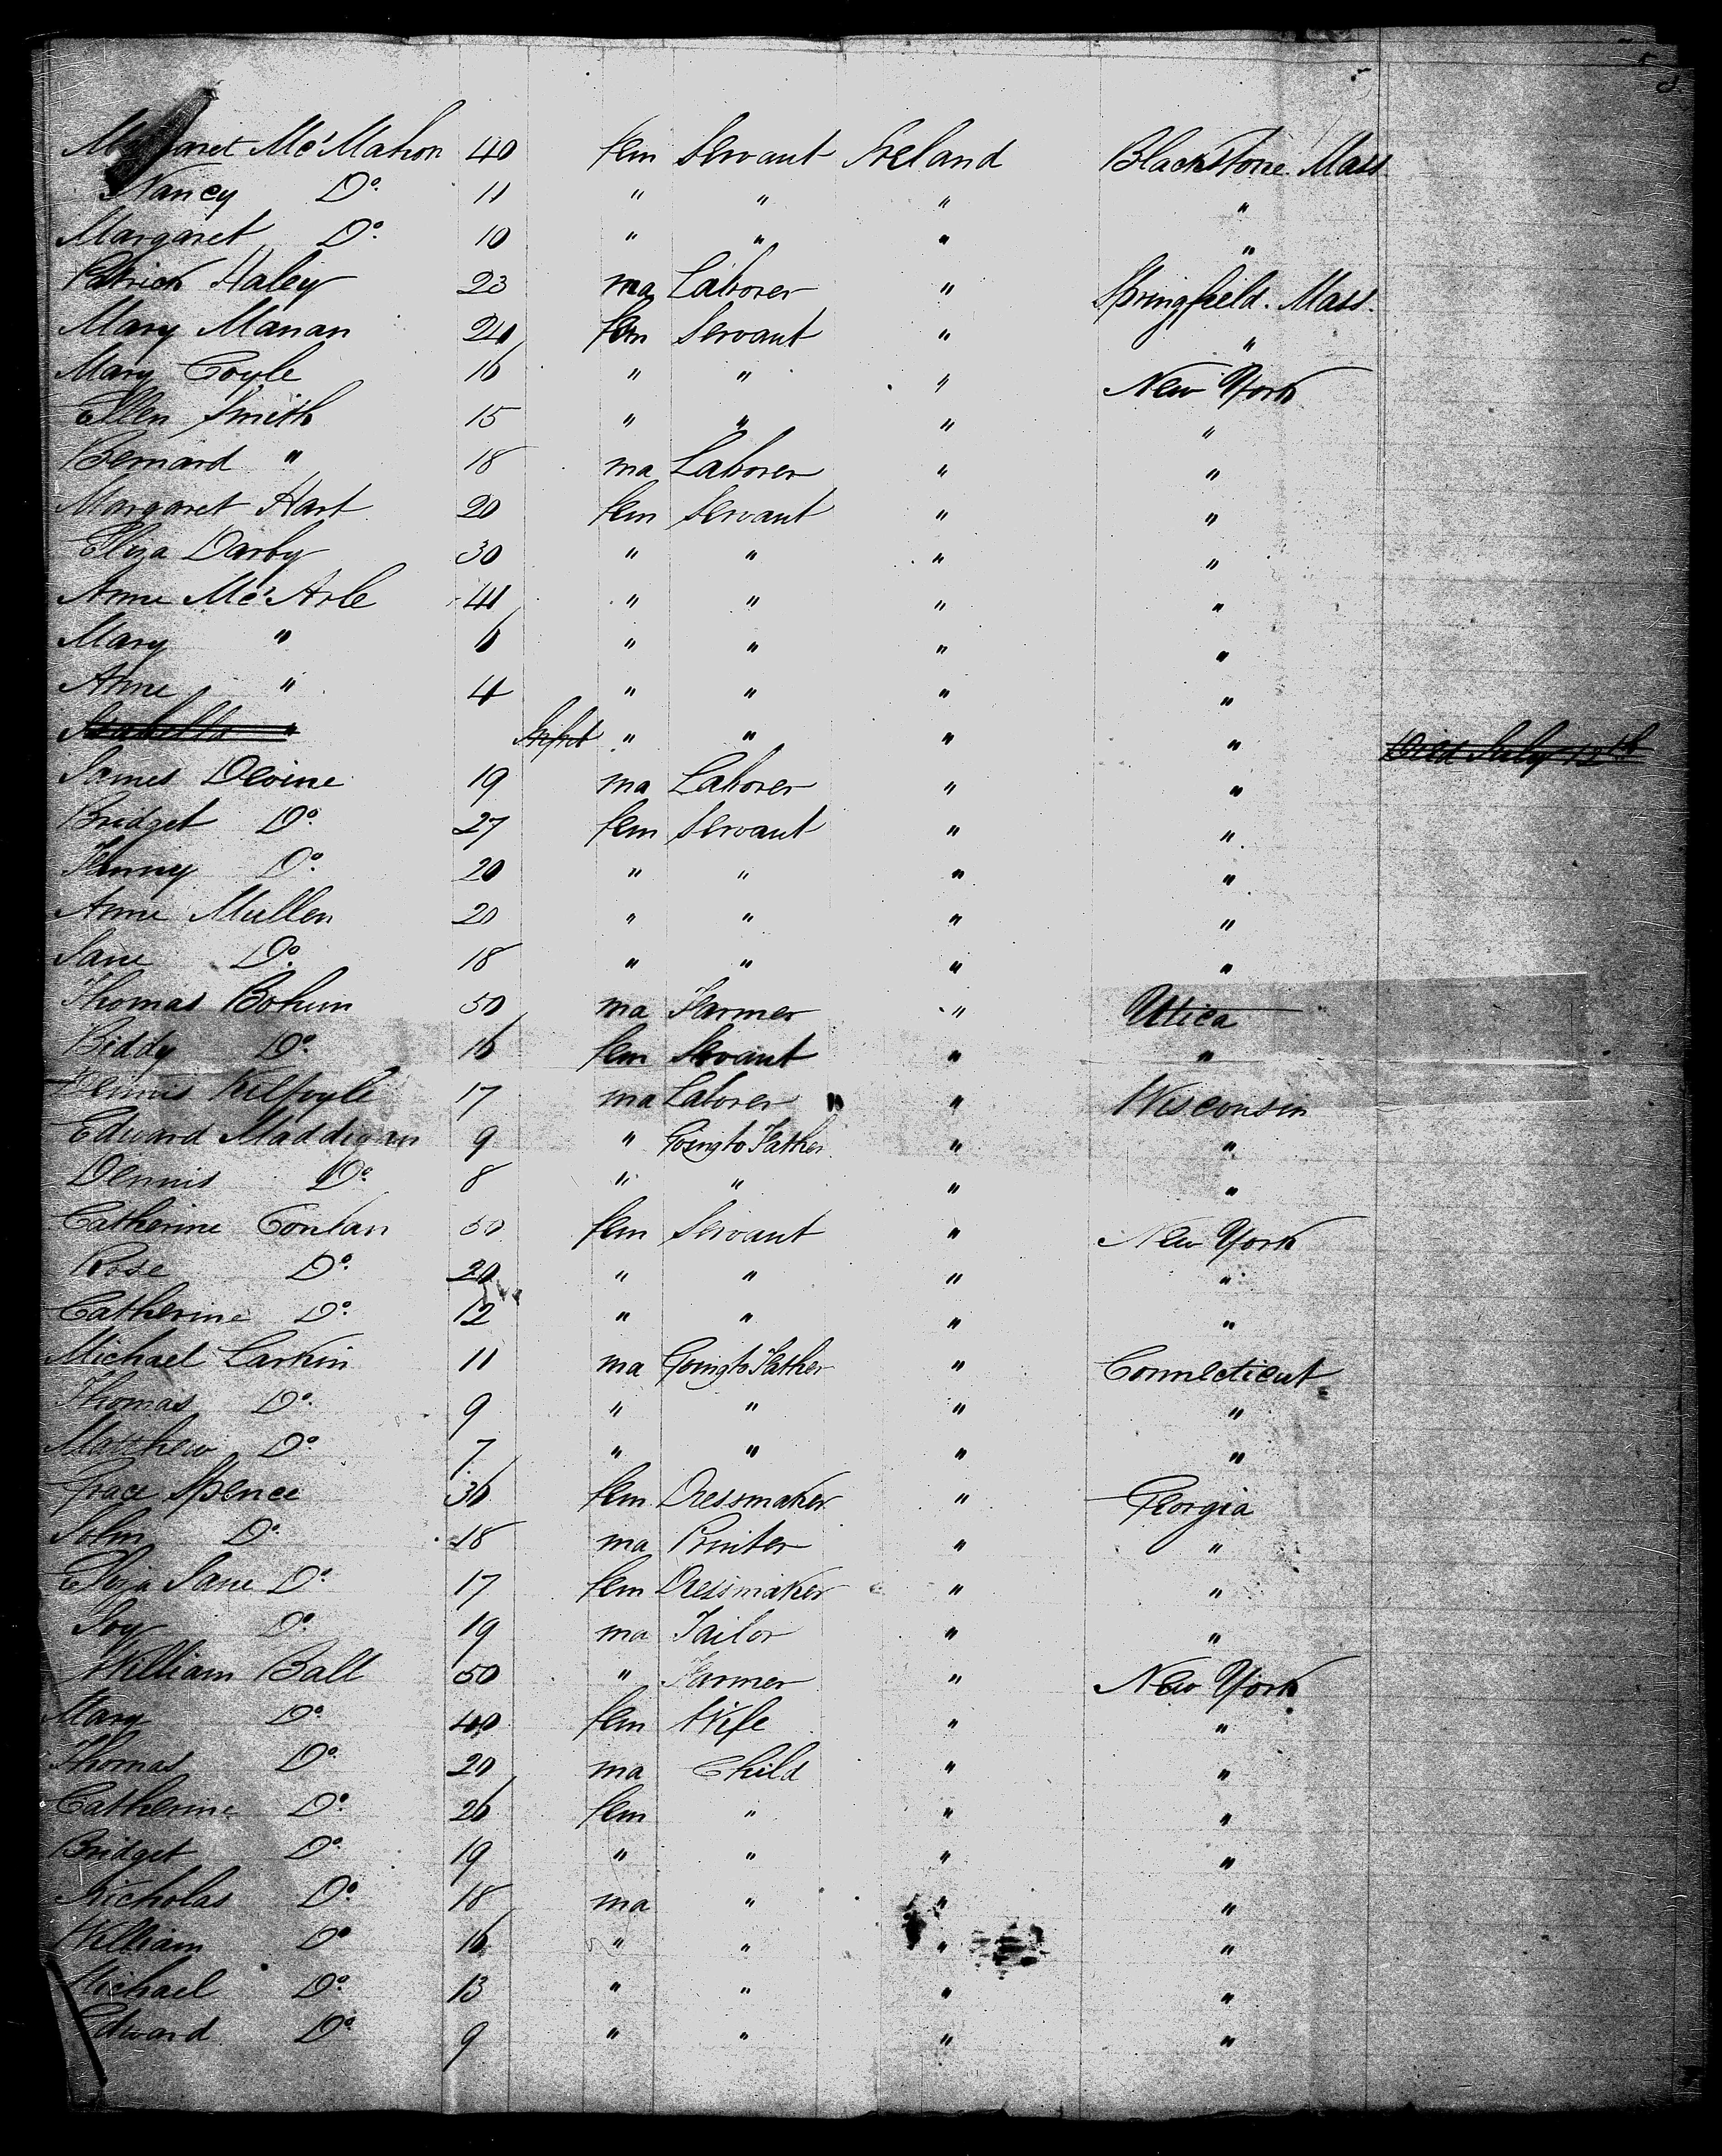 Margaret Mc'Mahon 40 fem Servant Ireland Blackstone. Mass
Nancy Do. 11 " " " "
Margaret Do. 10 " " " "
Patrick Haley 23 ma Laborer " Springfield. Mass.
Mary Manan 20 fem Servant " "
Mary Coyle 16 " " " New York
Ellen Smith 15 " " " "
Bernard " 18 ma Laborer " "
Margaret Hart 20 fem Servant " "
Eliza Darby 30 " " " "
Anne Mc'Arle 41 " " " "
Mary " 6 " " " "
Anne " 4 " " " "
Isabella " Infnt " " " " Died July 12th
James Devine 19 ma Laborer " "
Bridget Do. 27 fem Servant " "
Do. 20 " " " "
Anne Mullen 20 " " " "
Jane Do. 18 " " " "
Thomas Bohun 50 ma Farmer " Utica
Biddy Do. 16 fem Servant " "
Dennis Kilfoyle 17 ma Laborer " Wisconsin
Edward Maddigan 9 " Going to Father " "
Dennis Do. 8 " " " "
Catherine Conlan 50 fem Servant " New York
Rose Do. 20 " " " "
Catherine Do. 12 " " " "
Michael Larkin 11 ma Going to Father " Connecticut
Thomas Do. 9 " " " "
Matthew Do 7 " " " "
Grace Spence 36 fem Dressmaker " Georgia
John Do. 18 ma Printer " "
Eliza Jane Do. 17 fem Dressmaker " "
Do. 19 ma Tailor " "
William Ball 50 " Farmer " New York
Mary Do. 40 fem Wife " "
Thomas Do. 20 ma Child " "
Catherine Do. 26 fem " " "
Bridget Do. 19 " " " "
Nicholas Do. 18 ma " " "
William Do 16 " " " "
Michael Do. 13 " " " "
Edward Do. 9 " " " "